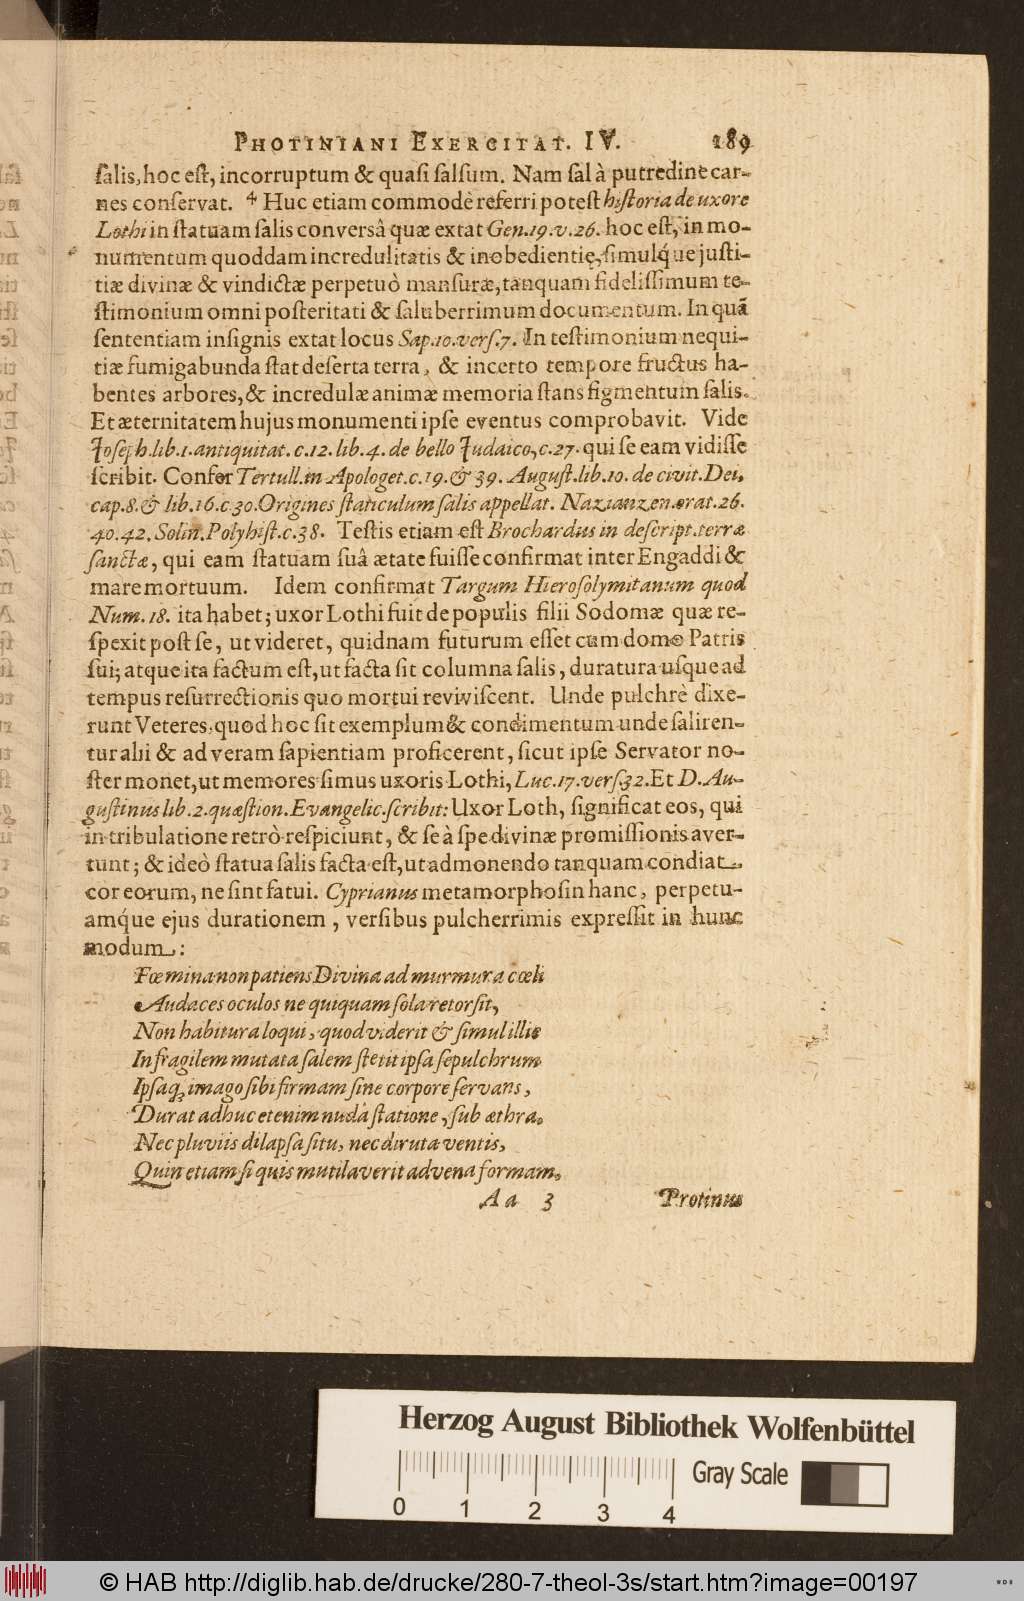 PHOTINIANI EXERCITAT. IV. 189
ſalis, hoc eſt, incorruptum & quaſi ſalſum. Nam ſal à putredine car-
nes conſervat. ⁴ Huc etiam commodè referri poteſt hiſtoria de uxore
Lothi in ſtatuam ſalis conversâ quæ extat Gen. 19. v. 26. hoc eſt, in mo-
numentum quoddam incredulitatis & inobedientię, ſimulq́; juſti-
tiæ divinæ & vindictæ perpetuò manſuræ, tanquam fideliſſimum te-
ſtimonium omni poſteritati & ſaluberrimum documentum. In quã
ſententiam inſignis extat locus Sap. 10. verſ. 7. In teſtimonium nequi-
tiæ fumigabunda ſtat deſerta terra, & incerto tempore fructus ha-
bentes arbores, & incredulæ animæ memoria ſtans figmentum ſalis.
Et æternitatem hujus monumenti ipſe eventus comprobavit. Vide
Joſeph. lib. 1. antiquitat. c. 12. lib. 4. de bello Judaico, c. 27. qui ſe eam vidiſſe
ſcribit. Confer Tertull. in Apologet. c. 19. & 39. Auguſt. lib. 10. de civit. Dei,
cap. 8. & lib. 16. c. 30. Origines ſtaticulum ſalis appellat. Nazianzen. orat. 26.
40. 42. Solin. Polyhiſt. c. 38. Teſtis etiam eſt Brochardus in deſcript. terræ
ſanctæ, qui eam ſtatuam ſuâ ætate fuiſſe confirmat inter Engaddi &
mare mortuum. Idem confirmat Targum Hieroſolymitanum quod
Num. 18. ita habet; uxor Lothi fuit de populis filii Sodomæ quæ re-
ſpexit poſt ſe, ut videret, quidnam futurum eſſet cum domo Patris
ſui; atque ita factum eſt, ut facta ſit columna ſalis, duratura uſque ad
tempus reſurrectionis quo mortui reviviſcent. Unde pulchrè dixe-
runt Veteres, quod hoc ſit exemplum & condimentum unde ſaliren-
tur alii & ad veram ſapientiam proficerent, ſicut ipſe Servator no-
ſter monet, ut memores ſimus uxoris Lothi, Luc. 17. verſ. 32. Et D. Au-
guſtinus lib. 2. quæſtion. Evangelic. ſcribit: Uxor Loth, ſignificat eos, qui
in tribulatione retrò reſpiciunt, & ſe à ſpe divinæ promiſſionis aver-
tunt; & ideò ſtatua ſalis facta eſt, ut admonendo tanquam condiat
cor eorum, ne ſint fatui. Cyprianus metamorphoſin hanc, perpetu-
amq́ue ejus durationem, verſibus pulcherrimis expreſſit in hunc
modum:
Fœmina non patiens Divina ad murmura cœli
Audaces oculos ne quiquam ſola retorſit,
Non habitura loqui, quod viderit & ſimul illic
In fragilem mutata ſalem ſtetit ipſa ſepulchrum
Ipſaq; imago ſibi firmam ſine corpore ſervans,
Durat adhuc etenim nudâ ſtatione, ſub æthra.
Nec pluviis dilapſa ſitu, nec diruta ventis,
Quin etiam ſi quis mutilaverit advena formam.
Aa 3 Protinus
Herzog August Bibliothek Wolfenbüttel
Gray Scale
0 1 2 3 4
© HAB http://diglib.hab.de/drucke/280-7-theol-3s/start.htm?image=00197